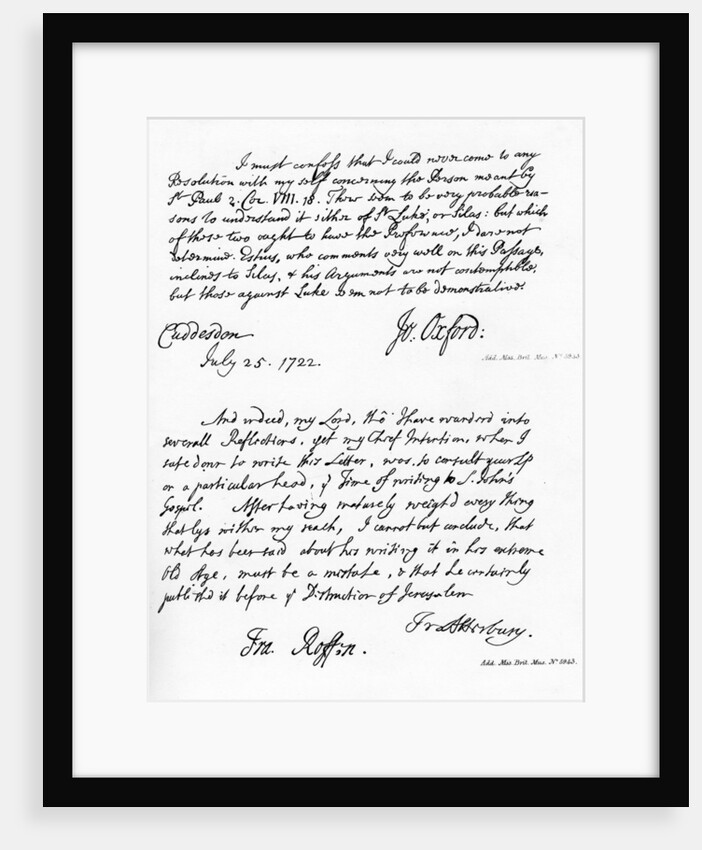 I must confess that I could never come to any
Resolution with my self concerning the Person meant by
St Paul 2. Cor. VIII. 18. There seem to be very probable rea-
sons to understand it either of St Luke, or Silas: but which
of these two ought to have the Preference, I dare not
determine. Estius, who comments very well on this Passage,
inclines to Silas, & his Arguments are not contemptible,
but those against Luke seem not to be demonstrative.
Cuddesdon
Jo: Oxford:
July 25. 1722.
Add. Mss. Brit. Mus. No.
And indeed, my Lord, tho I have wanderd into
severall Reflections, yet my Chief Intention, when I
sate down to write this Letter, was, to consult your Lp
on a particular head, ye Time of writing to S. John's
Gospel. After having maturely weigh'd every thing
that lys within my reach, I cannot but conclude, that
what has been said about his writing it in his extreme
Old Age, must be a mistake, & that he certainly
publish'd it before ye Distruction of Jerusalem
Fr. Atterbury.
Fra. Roffen.
Add. Mss. Brit. Mus. No.